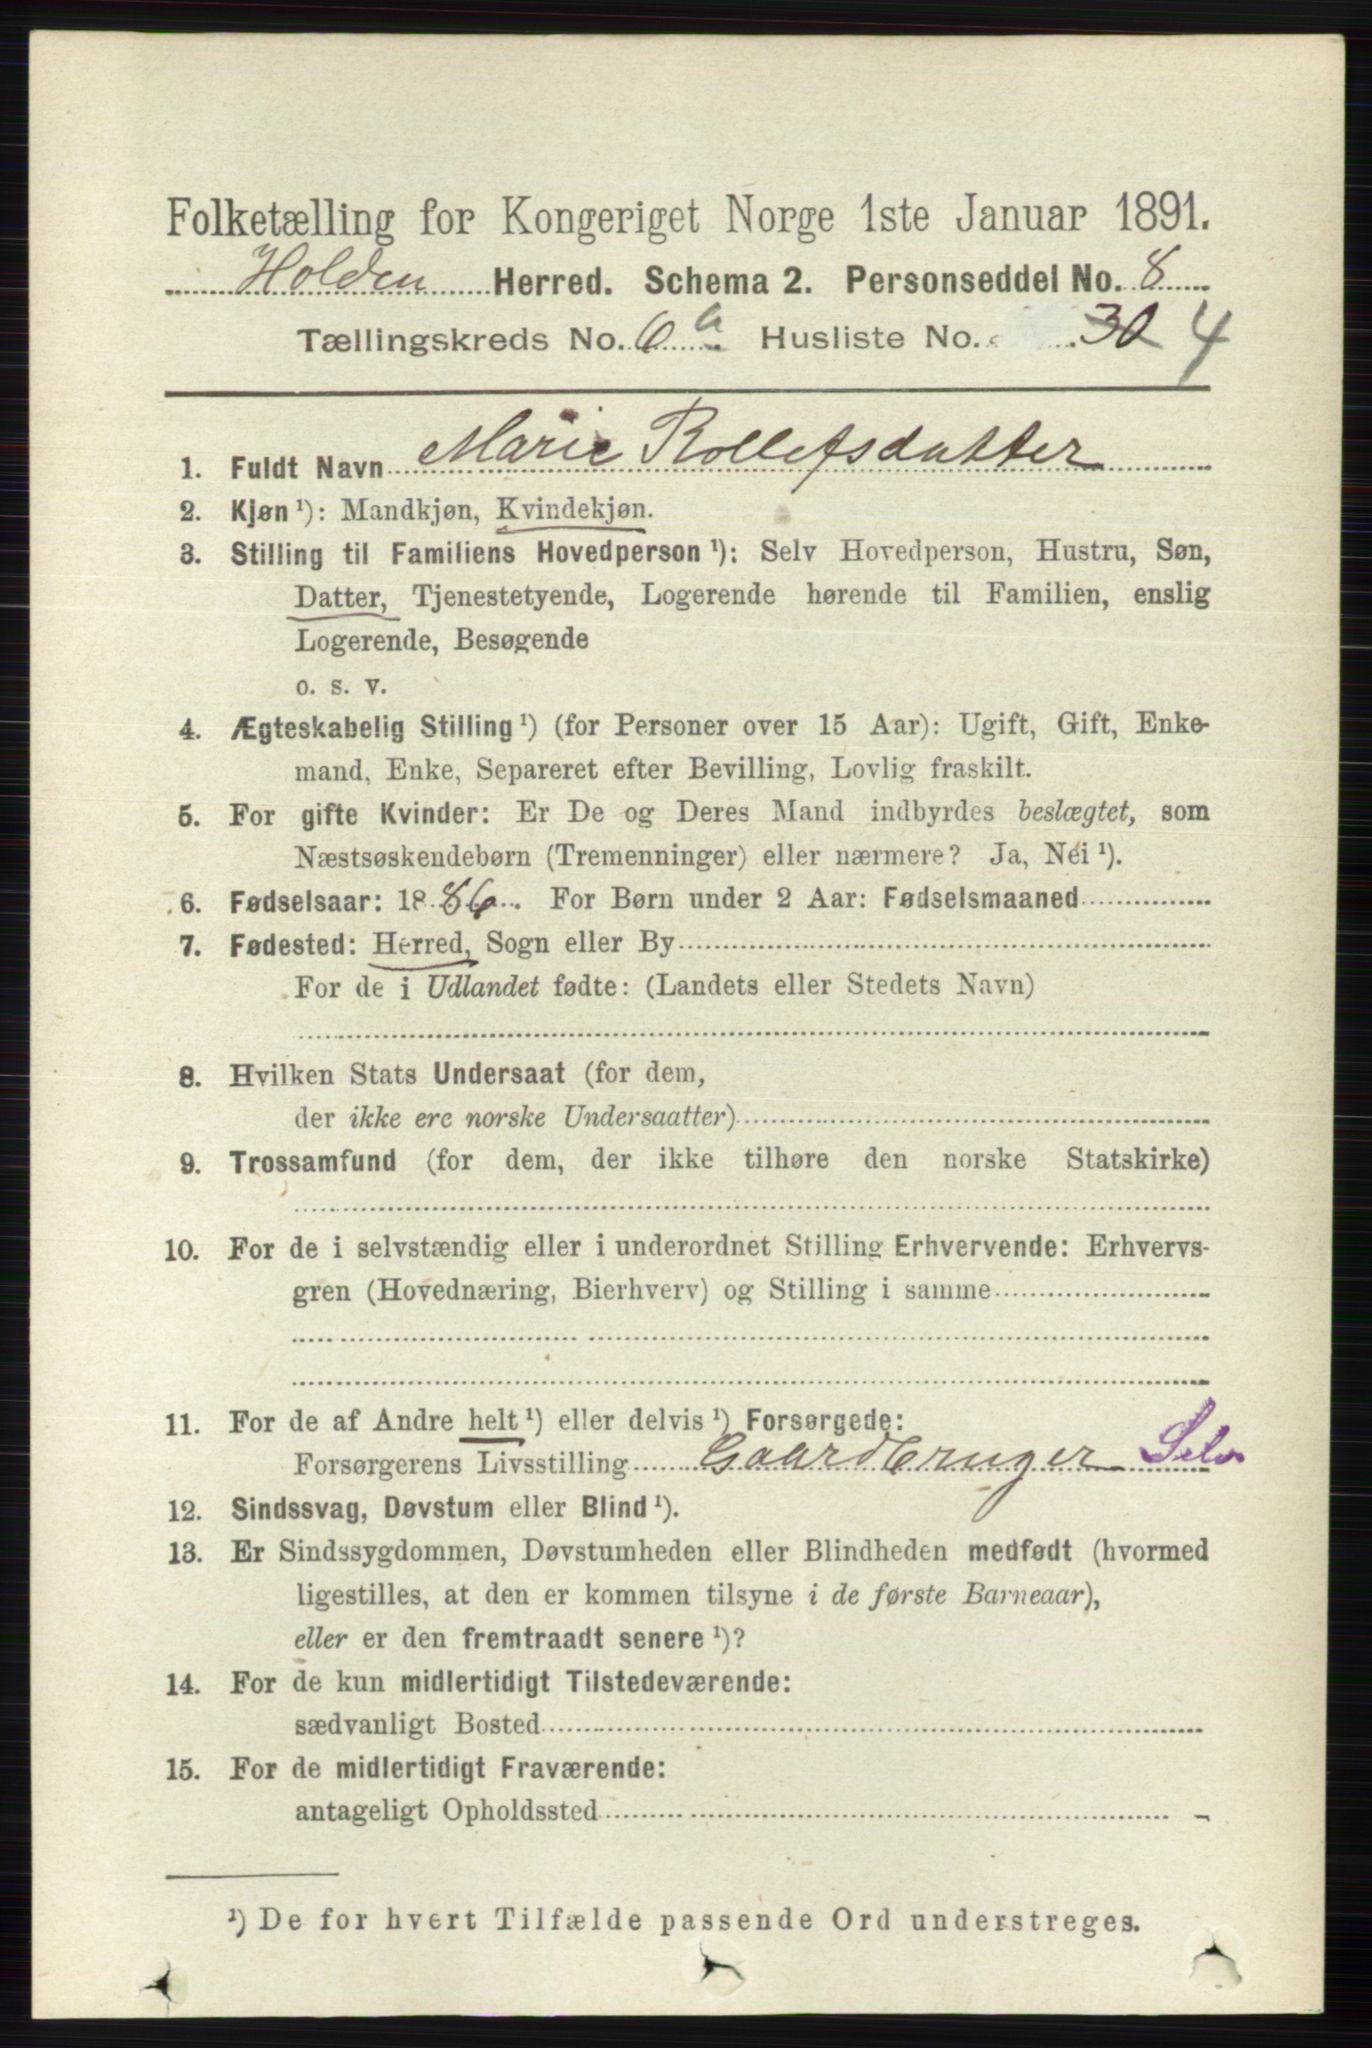 Folketælling for Kongeriget Norge 1ste Januar 1891.
Holden Herred. Schema 2. Personseddel No. 8
Tællingskreds No. 6 a Husliste No. 30 4
1. Fuldt Navn Marie Rollefsdatter
2. Kjøn ¹): Mandkjøn, Kvindekjøn.
3. Stilling til Familiens Hovedperson ¹): Selv Hovedperson, Hustru, Søn,
Datter, Tjenestetyende, Logerende hørende til Familien, enslig
Logerende, Besøgende
o. s. v.
4. Ægteskabelig Stilling ¹) (for Personer over 15 Aar): Ugift, Gift, Enke-
mand, Enke, Separeret efter Bevilling, Lovlig fraskilt.
5. For gifte Kvinder: Er De og Deres Mand indbyrdes beslægtet, som
Næstsøskendebørn (Tremenninger) eller nærmere? Ja, Nei ¹).
6. Fødselsaar: 1886. For Børn under 2 Aar: Fødselsmaaned
7. Fødested: Herred, Sogn eller By
For de i Udlandet fødte: (Landets eller Stedets Navn)
8. Hvilken Stats Undersaat (for dem,
der ikke ere norske Undersaatter)
9. Trossamfund (for dem, der ikke tilhøre den norske Statskirke)
10. For de i selvstændig eller i underordnet Stilling Erhvervende: Erhvervs-
gren (Hovednæring, Bierhverv) og Stilling i samme
11. For de af Andre helt ¹) eller delvis ¹) Forsørgede:
Forsørgerens Livsstilling Gaardbruger Selv
12. Sindssvag, Døvstum eller Blind ¹).
13. Er Sindssygdommen, Døvstumheden eller Blindheden medfødt (hvormed
ligestilles, at den er kommen tilsyne i de første Barneaar),
eller er den fremtraadt senere ¹)?
14. For de kun midlertidigt Tilstedeværende:
sædvanligt Bosted
15. For de midlertidigt Fraværende:
antageligt Opholdssted
¹) De for hvert Tilfælde passende Ord understreges.